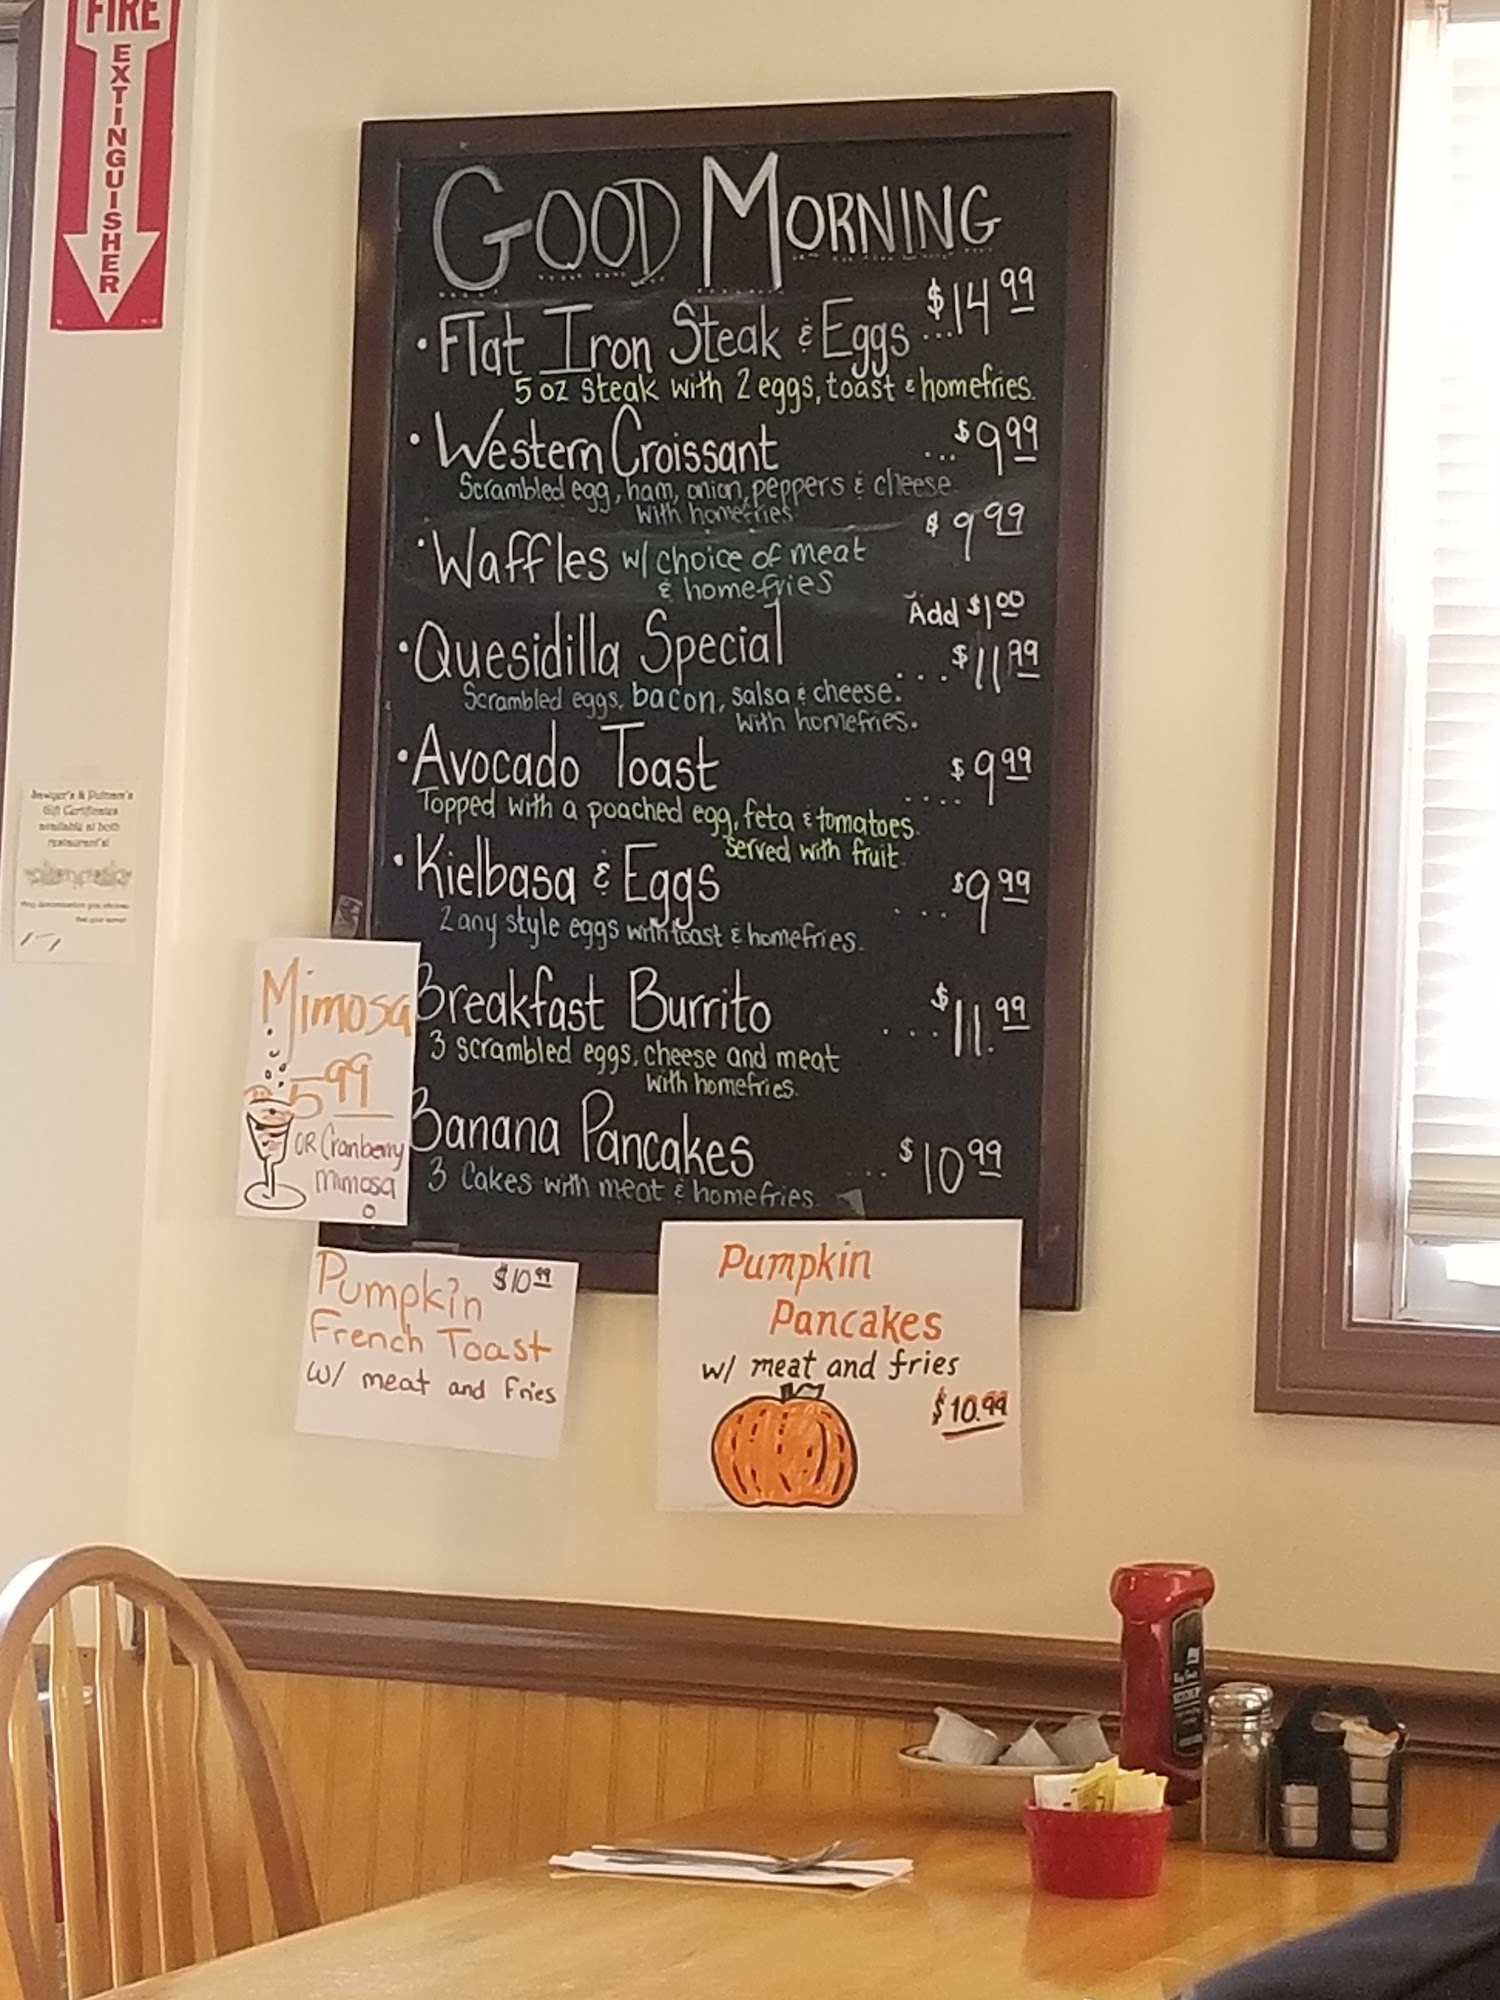 FIRE
EXTINGUISHER
GOOD MORNING
• Flat Iron Steak & Eggs ... $14 99
5 oz Steak with 2 eggs, toast & homefries.
• Western Croissant ... $9 99
Scrambled egg, ham, onion, peppers & cheese.
with homefries.
• Waffles w/ choice of meat $9 99
& homefries
Add $1 00
• Quesidilla Special .... $11 99
Scrambled eggs, bacon, salsa & cheese.
with homefries.
• Avocado Toast .... $9 99
Topped with a poached egg, feta & tomatoes.
served with fruit.
• Kielbasa & Eggs ... $9 99
2 any style eggs with toast & homefries.
Breakfast Burrito ... $11.99
3 scrambled eggs, cheese and meat
with homefries.
Banana Pancakes ... $10 99
3 Cakes with meat & homefries.
Sawyer's & Putnam's
Gift Certificates
available at both
restaurants!
Any denomination you choose.
See your server
Mimosa
5 99
OR Cranberry
Mimosa
Pumpkin $10 99
French Toast
w/ meat and fries
Pumpkin
Pancakes
w/ meat and fries
$10.99